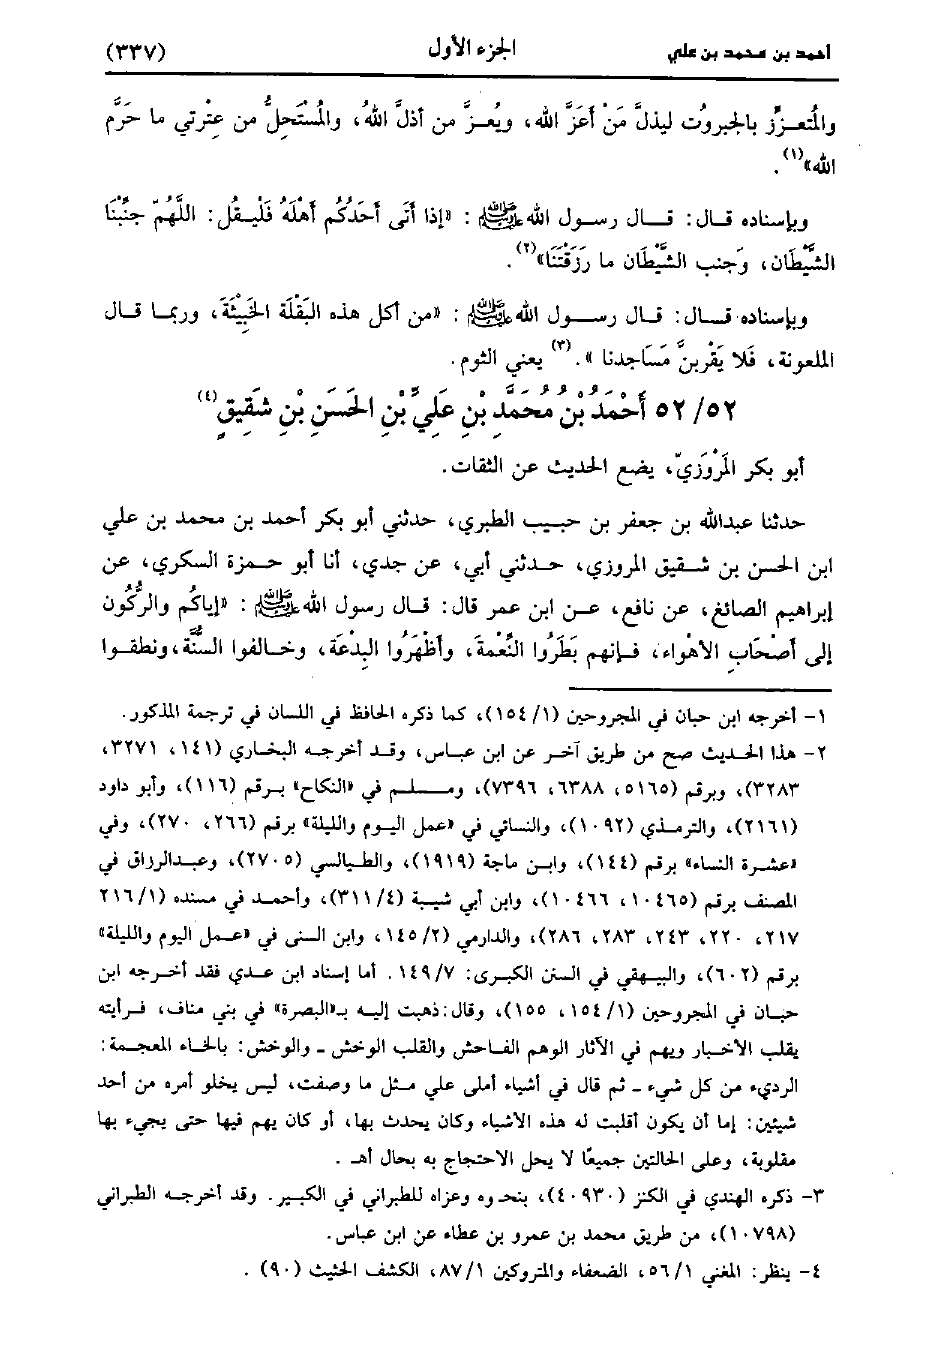 أحمد بن محمد بن علي الجزء الأول (٣٣٧)
والمُتعـزِّز بالجبروُت ليذلَّ مَنْ أعَزَّ الله، ويُعـزَّ من أذلَّ اللهُ، والمُسْتَحِلُّ من عِتْرتي ما حَرَّم
الله»(١).
وبإسناده قـال: قـال رسول الله ﷺ : «إذا أتَى أحَدُكُم أهْلَهُ فَلْيـقُل: اللَّهُمّ جنِّبْنَا
الشَّيْطَان، وَجنب الشَّيْطَان ما رَزَقْتَنَا»(٢).
وبإسناده قـال: قـال رسـول الله ﷺ : «من أكل هذه البَقْلَة الخَبِيثَة، وربمـا قـال
الملعونة، فَلا يَقْربنَّ مَسَاجدنا ».(٣) يعني الثوم.
٥٢/ ٥٢ أَحْمَدُ بْنُ مُحَمَّد بْنِ عَلَيِّ بْنِ الحَسَنِ بْنِ شَقيقٍ(٤)
أبو بكر المَرْوَزِيّ، يضع الحديث عن الثقات.
حدثنا عبدالله بن جعفر بن حبيب الطبري، حدثني أبو بكر أحمد بن محمد بن علي
ابن الحسن بن شـقيق المروزي، حـدثني أبي، عن جدي، أنا أبو حـمزة السكري، عن
إبراهيم الصائغ، عن نافع، عـن ابن عمر قال: قـال رسول الله ﷺ : «إياكُم والرُّكُون
إلى أصْحَابِ الأهْواء، فـإنهم بَطَرُوا النِّعْمةَ، وأظْهَرُوا البِدْعَة، وخـالفوا السنَّة، ونطقـوا
١- أخرجه ابن حبان في المجروحين (١/ ١٥٤)، كما ذكره الحافظ في اللسان في ترجمة المذكور.
٢- هذا الحديث صح من طريق آخر عن ابن عباس، وقد أخرجه البخاري (١٤١، ٣٢٧١،
٣٢٨٣)، وبرقم (٥١٦٥، ٦٣٨٨، ٧٣٩٦)، ومـسلم في «النكاح» بـرقم (١١٦)، وأبو داود
(٢١٦١)، والترمـذي (١٠٩٢)، والنسائي في «عمل اليوم والليلة» برقم (٢٦٦، ٢٧٠)، وفي
«عشـرة النساء» برقم (١٤٤)، وابـن ماجة (١٩١٩)، والطيالسي (٢٧٠٥)، وعبدالرزاق في
المصنف برقم (١٠٤٦٥، ١٠٤٦٦)، وابن أبي شيبة (٣١١/٤)، وأحمـد في مسنده (٢١٦/١
٢١٧، ٢٢٠، ٢٤٣، ٢٨٣، ٢٨٦)، والدارمي (١٤٥/٢، وابن السنى في «عـمل اليوم والليلة»
برقم (٦٠٢)، والبيهقي في السنن الكبرى: ١٤٩/٧. أما إسناد ابن عدي فقد أخـرجه ابن
حبـان في المجروحين (١/ ١٥٤، ١٥٥)، وقال: ذهبت إليه بـ«البصرة» في بني مناف، فـرأيته
يقلب الأخبـار ويهم في الآثار الوهم الفـاحش والقلب الوخش ـ والوخش: بالخـاء المعجـمة:
الرديء من كل شيء ـ ثم قال في أشياء أملى علي مثل ما وصفت، ليس يخلو أمره من أحد
شيئين: إما أن يكون أقلبت له هذه الأشياء وكان يحدث بها، أو كان يهم فيها حتى يجيء بها
مقلوبة، وعلى الحالتين جميعًا لا يحل الاحتجاج به بحال أهـ .
٣- ذكره الهندي في الكنز (٤٠٩٣٠)، بنحـوه وعزاه للطبراني في الكبير. وقد أخرجـه الطبراني
(١٠٧٩٨)، من طريق محمد بن عمرو بن عطاء عن ابن عباس.
٤- ينظر: المغني ٥٦/١، الضعفاء والمتروكين ٨٧/١، الكشف الحثيث (٩٠) .